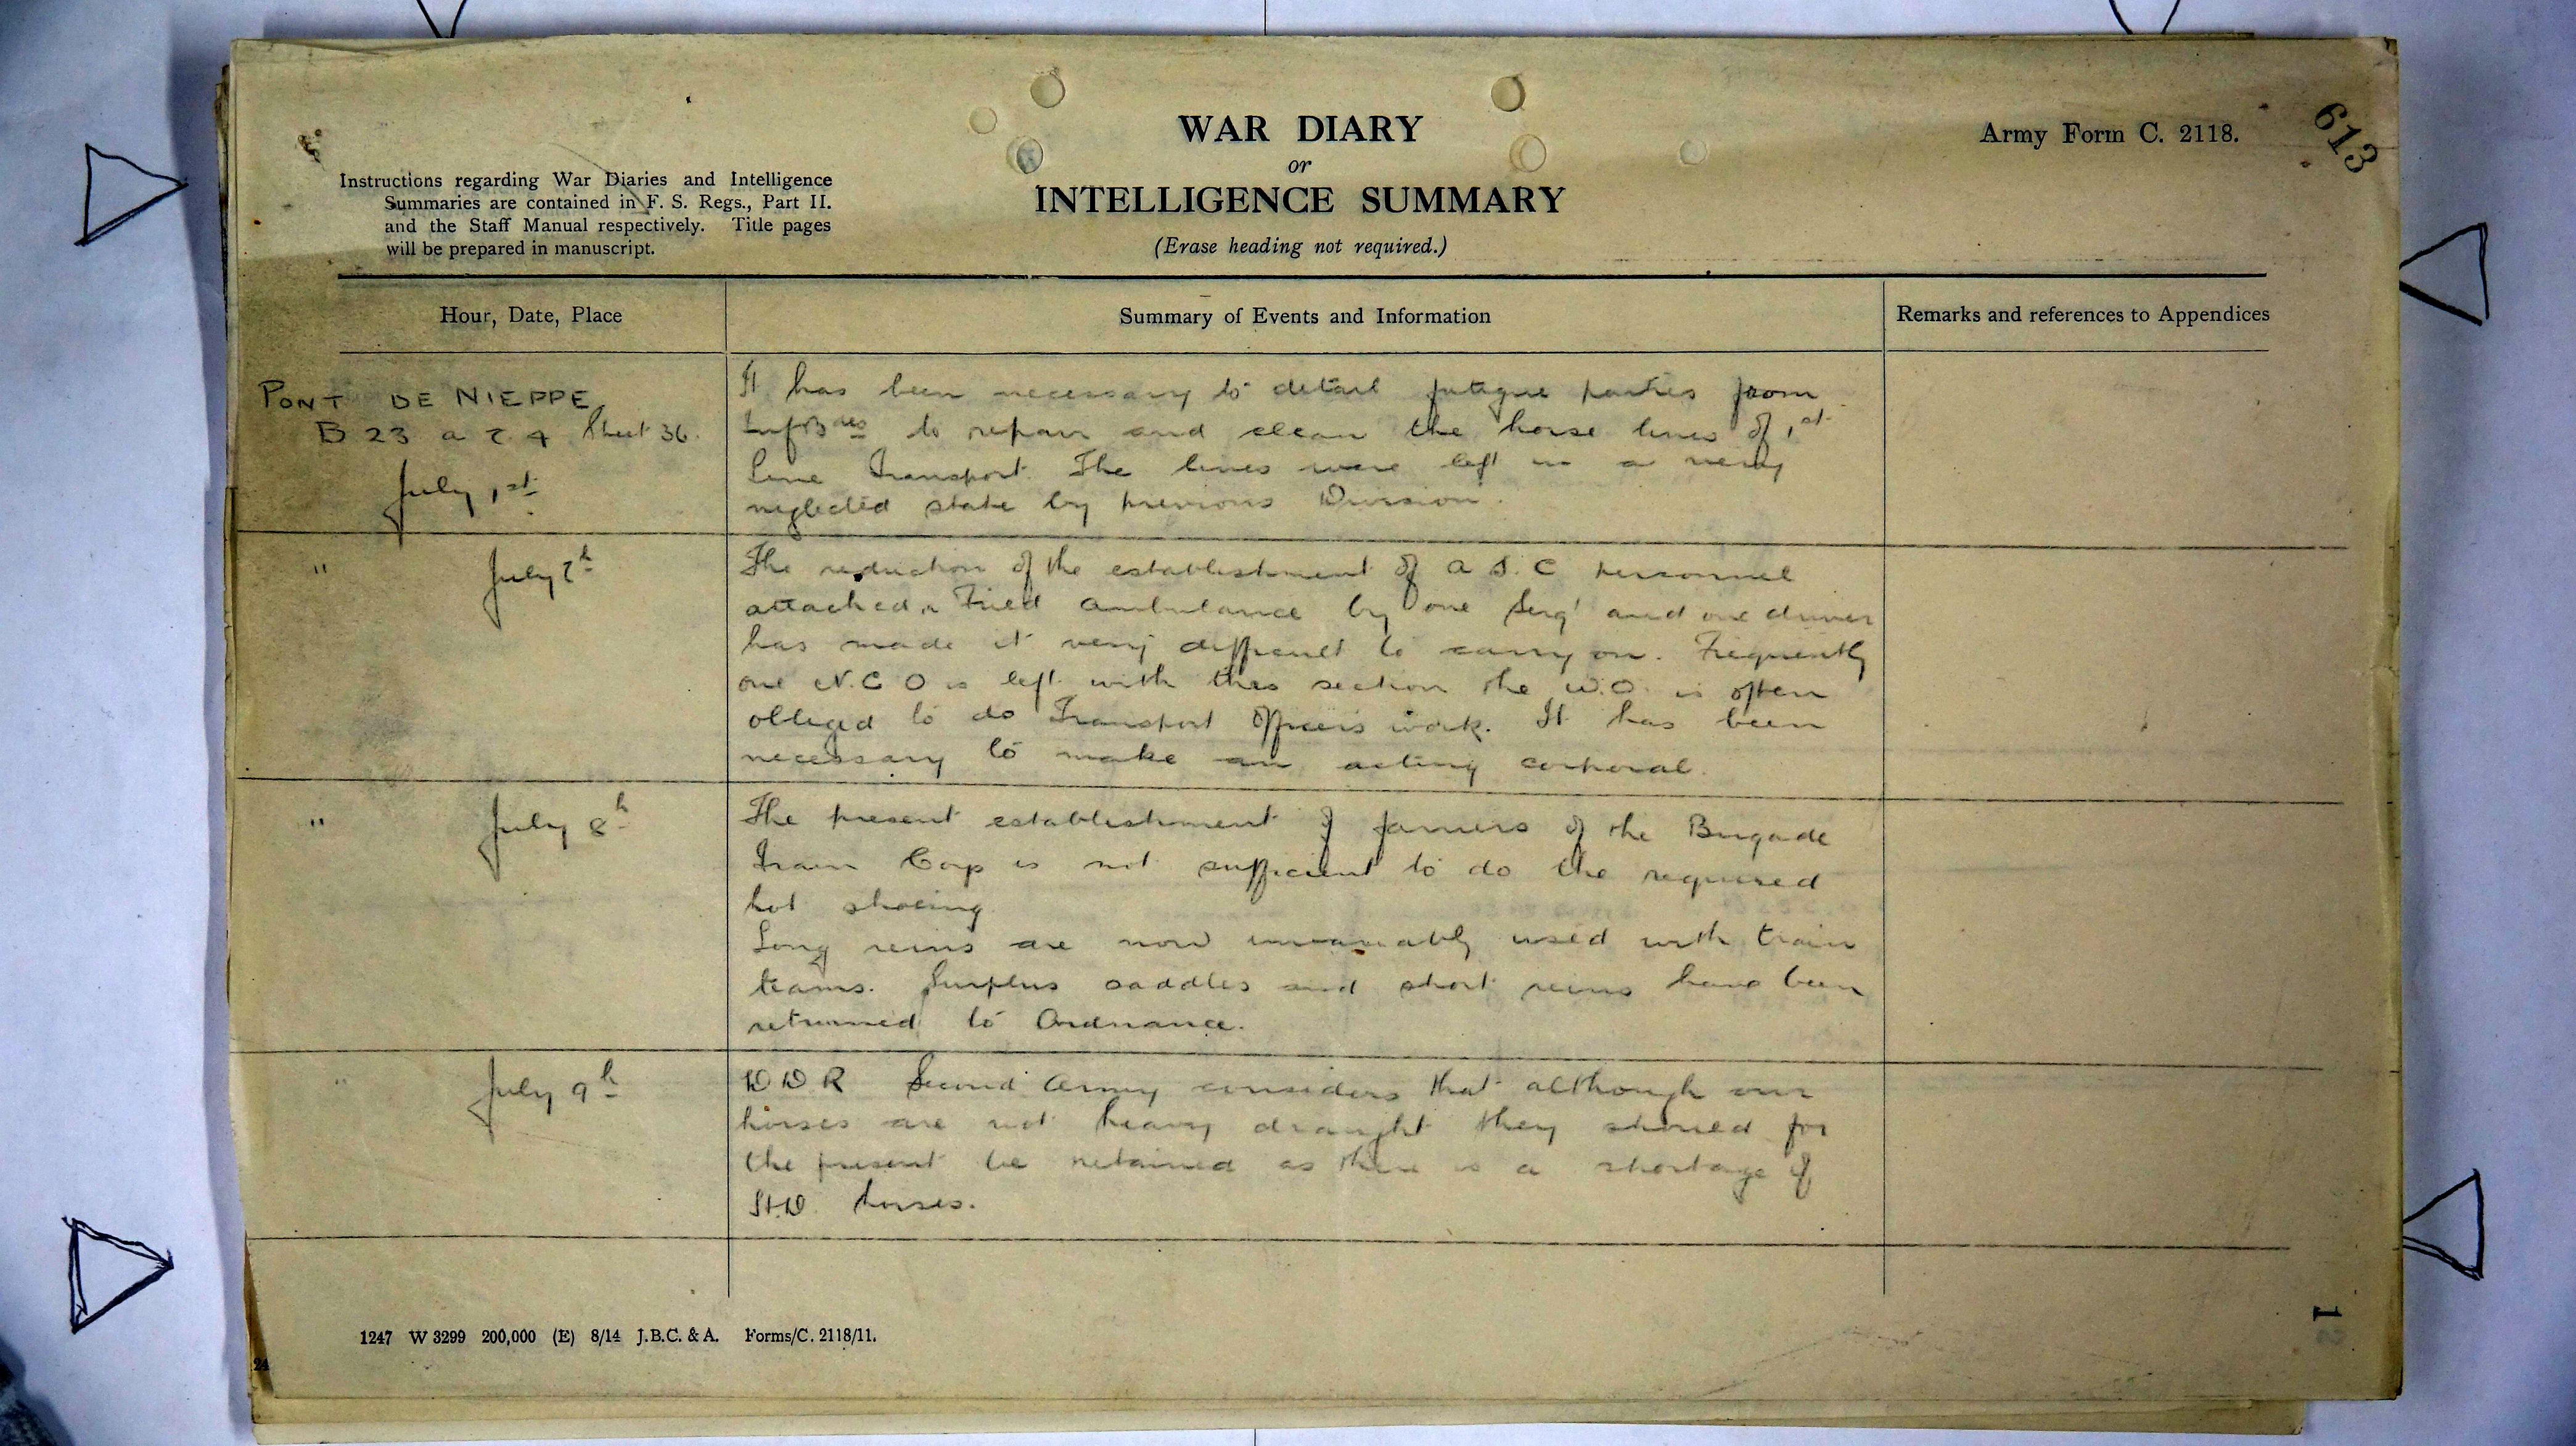 613
Army Form C. 2118.
WAR DIARY
or
INTELLIGENCE SUMMARY
(Erase heading not required.)
Instructions regarding War Diaries and Intelligence
Summaries are contained in F. S. Regs., Part II.
and the Staff Manual respectively. Title pages
will be prepared in manuscript.
Hour, Date, Place
Summary of Events and Information
Remarks and references to Appendices
PONT DE NIEPPE
B 23 a 2.4 Sheet 36.
July 1st
It has been necessary to detail fatigue parties from
Inf Bdes to repair and clean the horse lines of 1st
Line Transport. The lines were left in a very
neglected state by previous Division.
" July 2h
The reduction of the establishment of A S. C personnel
attached Field Ambulance by one Sergt and one driver
has made it very difficult to carry on. Frequently
one N.C O is left with this section the W.O. is often
obliged to do Transport Officers work. It has been
necessary to make an acting corporal.
" July 8h
The present establishment of farriers of the Brigade
Train Coys is not sufficient to do the required
hot shoeing
Long reins are now invariably used with train
teams. Surplus saddles and short reins have been
returned to Ordnance.
" July 9h
D D R Second Army considers that although our
horses are not heavy draught they should for
the present be retained as there is a shortage of
H.D. horses.
1247 W 3299 200,000 (E) 8/14 J.B.C. & A. Forms/C. 2118/11.
24
1